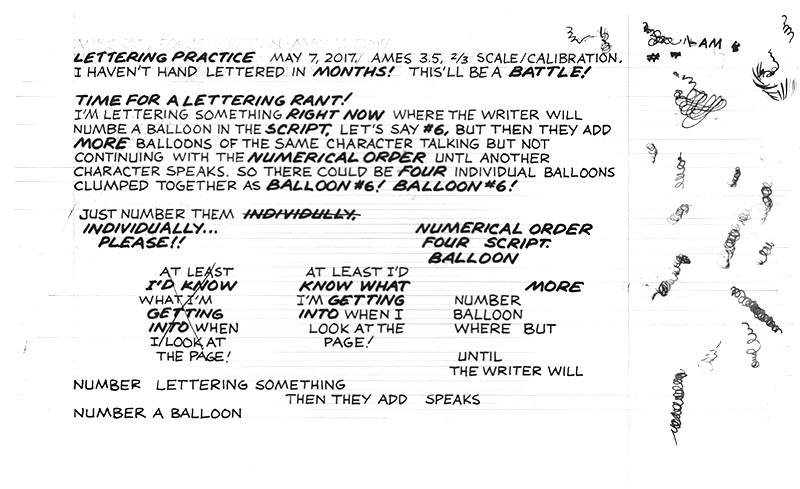 LETTERING PRACTICE MAY 7, 2017// AMES 3.5, 2/3 SCALE/CALIBRATION.
I HAVEN'T HAND LETTERED IN MONTHS! THIS'LL BE A BATTLE!
TIME FOR A LETTERING RANT!
I'M LETTERING SOMETHING RIGHT NOW WHERE THE WRITER WILL
NUMBE A BALLOON IN THE SCRIPT, LET'S SAY #6, BUT THEN THEY ADD
MORE BALLOONS OF THE SAME CHARACTER TALKING BUT NOT
CONTINUING WITH THE NUMERICAL ORDER UNTL ANOTHER
CHARACTER SPEAKS. SO THERE COULD BE FOUR INDIVIDUAL BALLOONS
CLUMPED TOGETHER AS BALLOON #6! BALLOON #6!
JUST NUMBER THEM INDIVIDULLY,
INDIVIDUALLY...
PLEASE!!
NUMERICAL ORDER
FOUR SCRIPT.
BALLOON
AT LEAST
I'D KNOW
WHAT I'M
GETTING
INTO WHEN
I LOOK AT
THE PAGE!
AT LEAST I'D
KNOW WHAT
I'M GETTING
INTO WHEN I
LOOK AT THE
PAGE!
MORE
NUMBER
BALLOON
WHERE BUT
UNTIL
THE WRITER WILL
NUMBER LETTERING SOMETHING
THEN THEY ADD SPEAKS
NUMBER A BALLOON